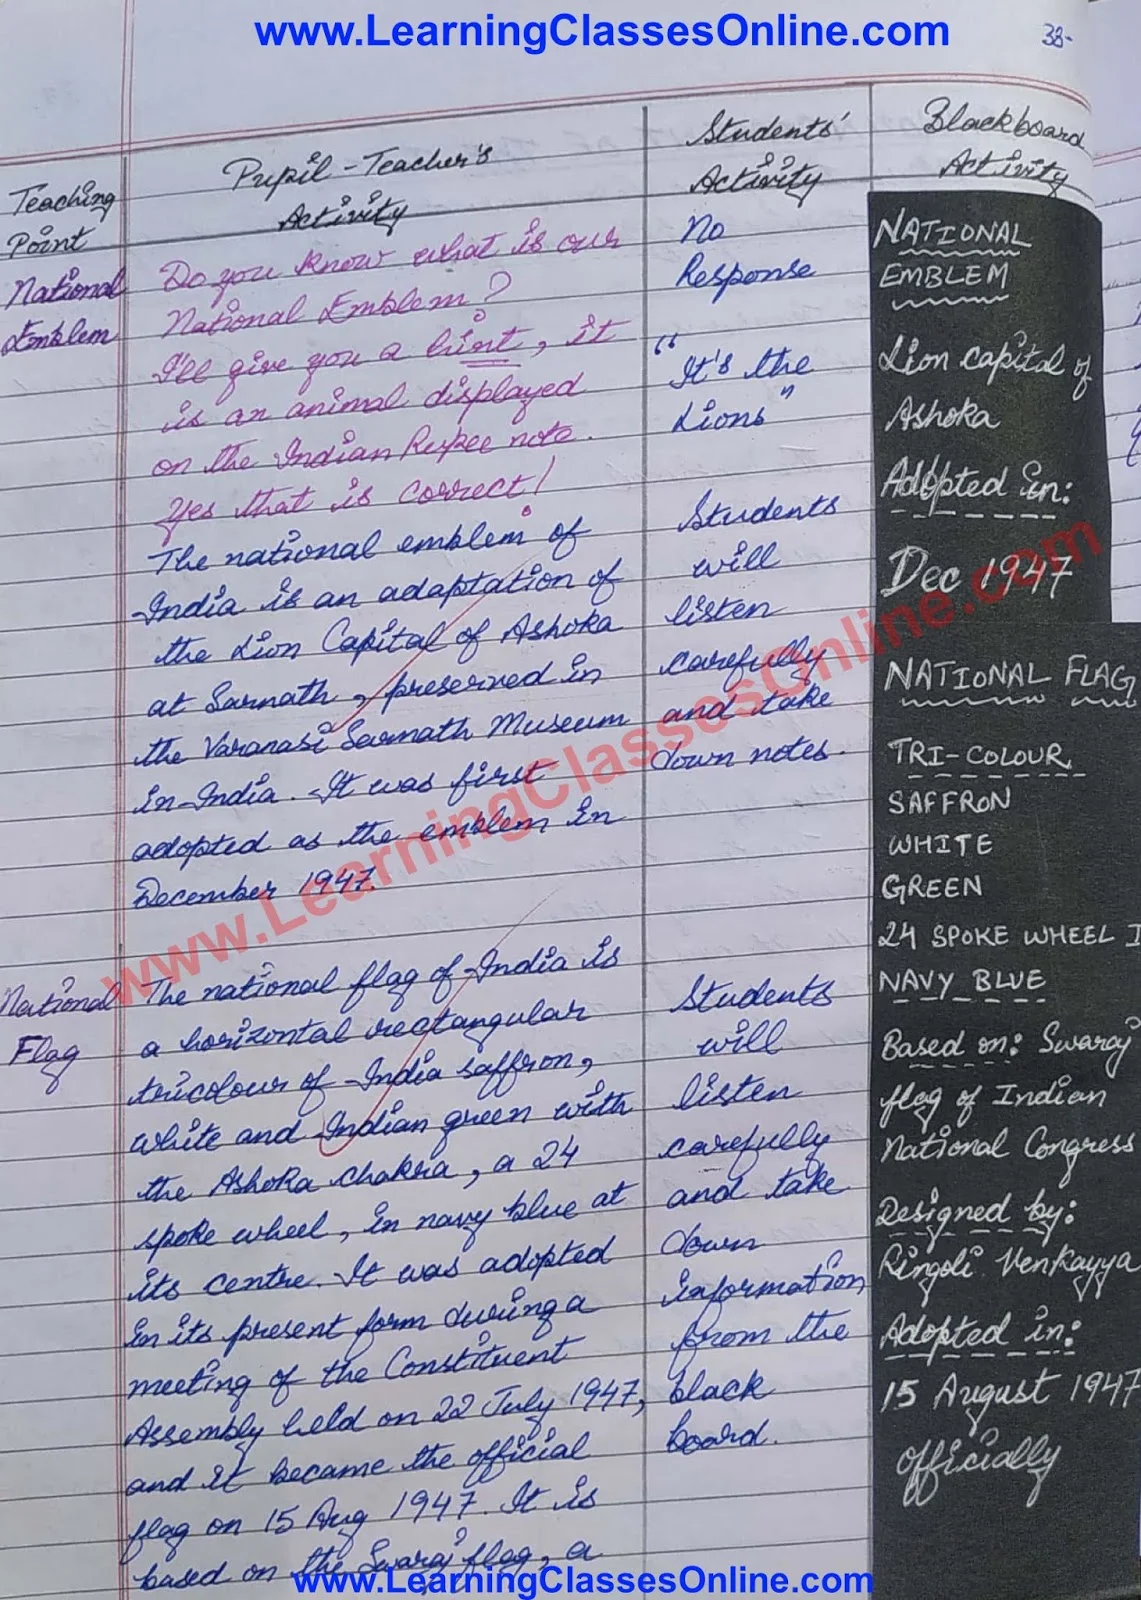 www.LearningClassesOnline.com
38-
Teaching
Point
Pupil-Teacher's
Activity
Students'
Activity
Blackboard
Activity
National
Emblem
Do you know what is our
National Emblem?
I'll give you a hint, it
is an animal displayed
on the Indian Rupee note.
Yes that is correct!
The national emblem of
India is an adaptation of
the Lion Capital of Ashoka
at Sarnath, preserved in
the Varanasi Sarnath Museum
in India. It was first
adopted as the emblem in
December 1947.
No
Response
"It's the
Lions"
Students
will
listen
carefully
and take
down notes.
NATIONAL
EMBLEM
Lion capital of
Ashoka
Adopted in:
Dec 1947
National
Flag
The national flag of India is
a horizontal rectangular
tricolour of India saffron,
white and Indian green with
the Ashoka chakra, a 24
spoke wheel, in navy blue at
its centre. It was adopted
in its present form during a
meeting of the Constituent
Assembly held on 22 July 1947,
and it became the official
flag on 15 Aug 1947. It is
based on the Swaraj flag, a
Students
will
listen
carefully
and take
down
information
from the
black
board.
NATIONAL FLAG
TRI-COLOUR
SAFFRON
WHITE
GREEN
24 SPOKE WHEEL I
NAVY BLUE
Based on: Swaraj
flag of Indian
National Congress
Designed by:
Pingoli Venkayya
Adopted in:
15 August 1947
officially
www.LearningClassesOnline.com
www.LearningClassesOnline.com